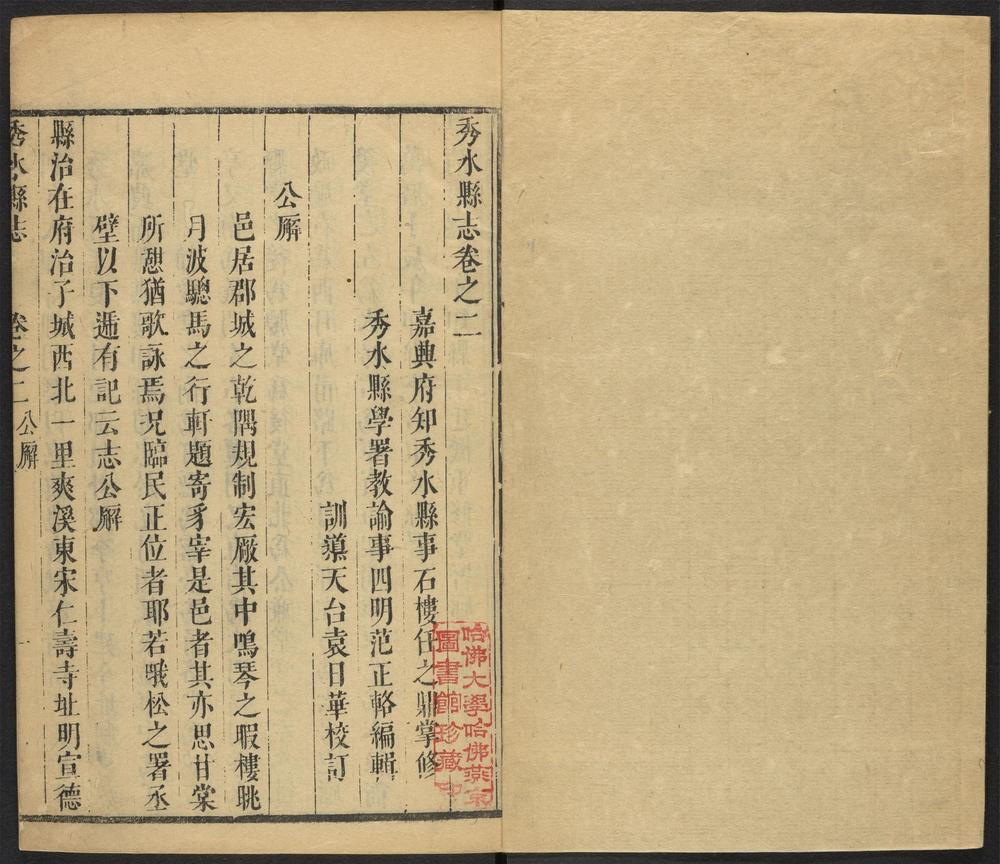 秀水縣志卷之二
嘉興府知秀水縣事石樓任之鼎掌修
秀水縣學署教諭事四明范正輅編輯
訓導天台袁日華校訂
公廨
邑居郡城之乾隅規制宏厰其中鳴琴之暇樓眺
月波驄馬之行軒題寄豸宰是邑者其亦思甘棠
所憩猶歌詠焉况臨民正位者耶若哦松之署丞
壁以下遞有記云志公廨
縣治在府治子城西北一里爽溪東宋仁壽寺址明宣德
秀水縣志 卷之二 公廨 一
哈佛大學哈佛燕京
圖書館珍藏印